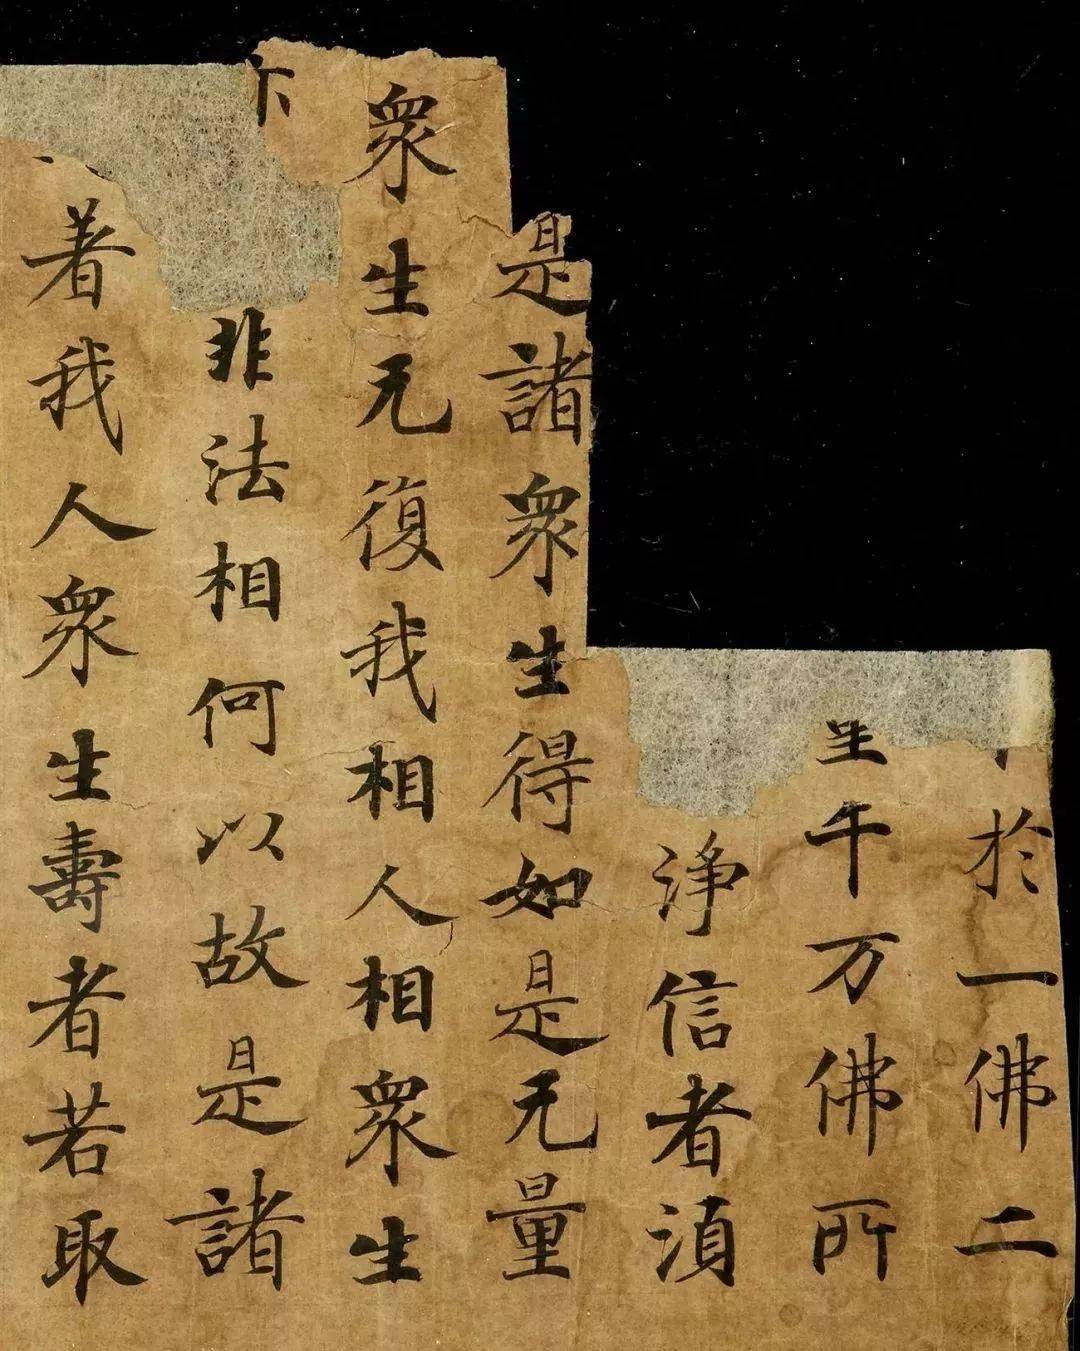 於一佛二
千万佛所
浄信者湏
是諸衆生得如是无量
衆生无復我相人相衆生
非法相何以故是諸
着我人衆生壽者若取